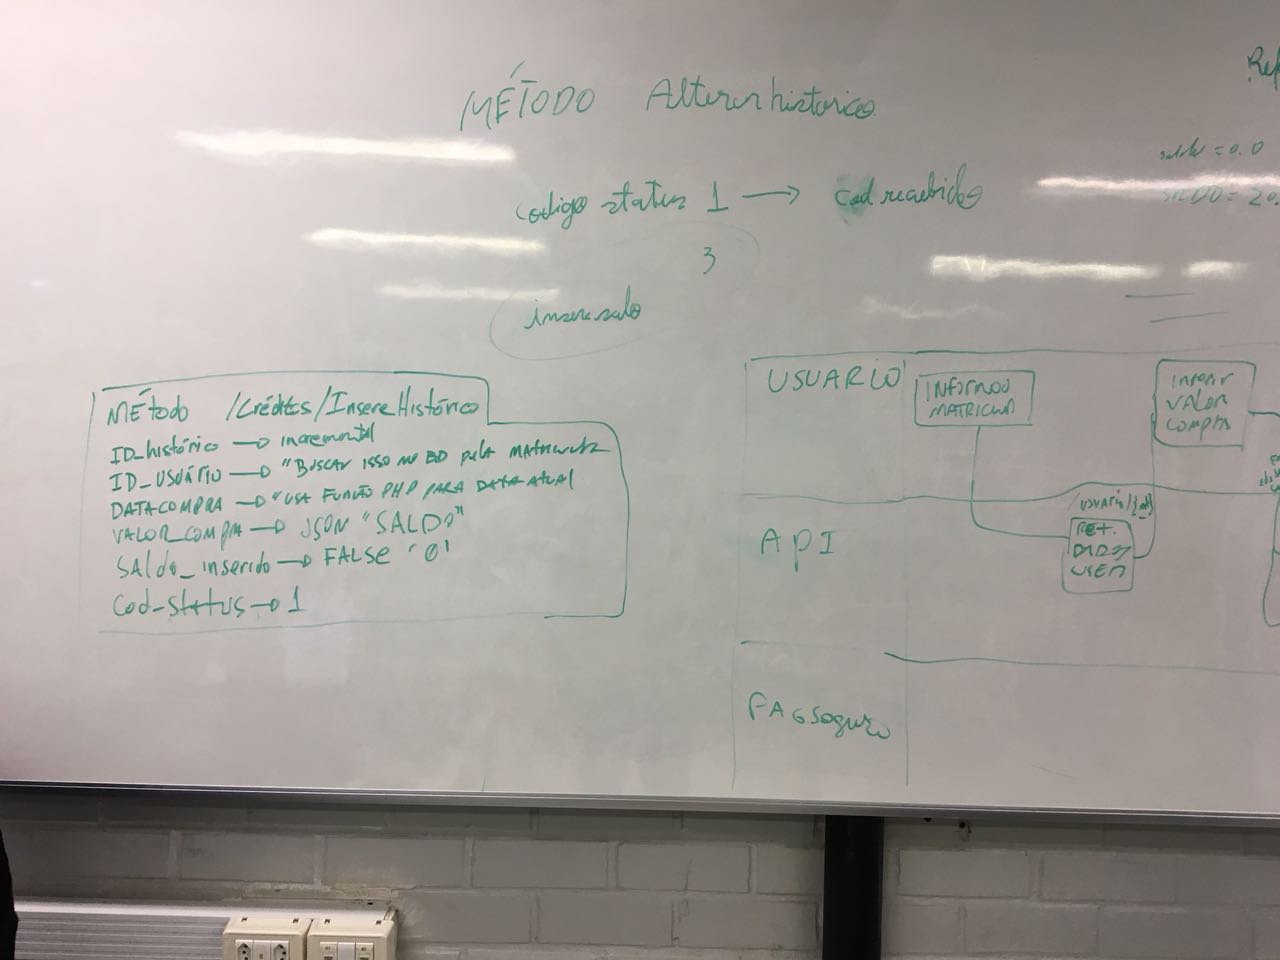 MÉTODO Alterar historico
codigo status 1 → cod recebido
3
insere saldo
MÉTodo /Crédits/InsereHistórico
ID_histórico → incremental
ID_USUÁRIO → "BUSCAR ISSO NO BD pela MATRICULA
DATACOMPRA → "USA FUNÇÃO PHP PARA DATA ATUAL
VALOR_COMPRA → JSON "SALDO"
SAldo_inserido → FALSE '0'
Cod_Status → 1
saldo = 0.0
SALDO = 20.
USUARIO
INFORMOU
MATRICULA
INFORMAR
VALOR
COMPRA
API
/USUARIO/
RET.
DADOS
USER
PAGSeguro